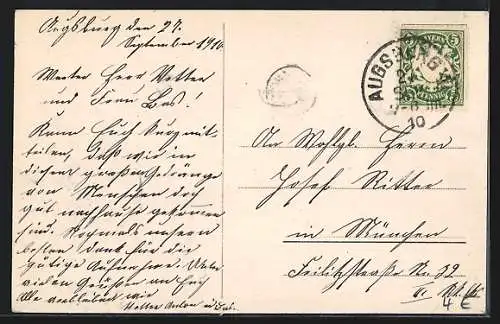 Augsburg den 27.
September 1910.
Werter Herr Vetter
und Frau Bas!
Kann Euch kurz mit-
teilen, daß wir in
dichem großen Gedränge
von Menschen doch
gut nachhause gekommen
sind. Nochmals unsern
besten Dank für die
gütige Aufnahme. Unter
vielen Grüßen an Euch
Alle verbleibt
Vetter Anton
BAYERN 5
AUGSBURG
10
An Wohlgb. Herrn
Josef Ritter
in München
Feilitzstraße No 32
4 €